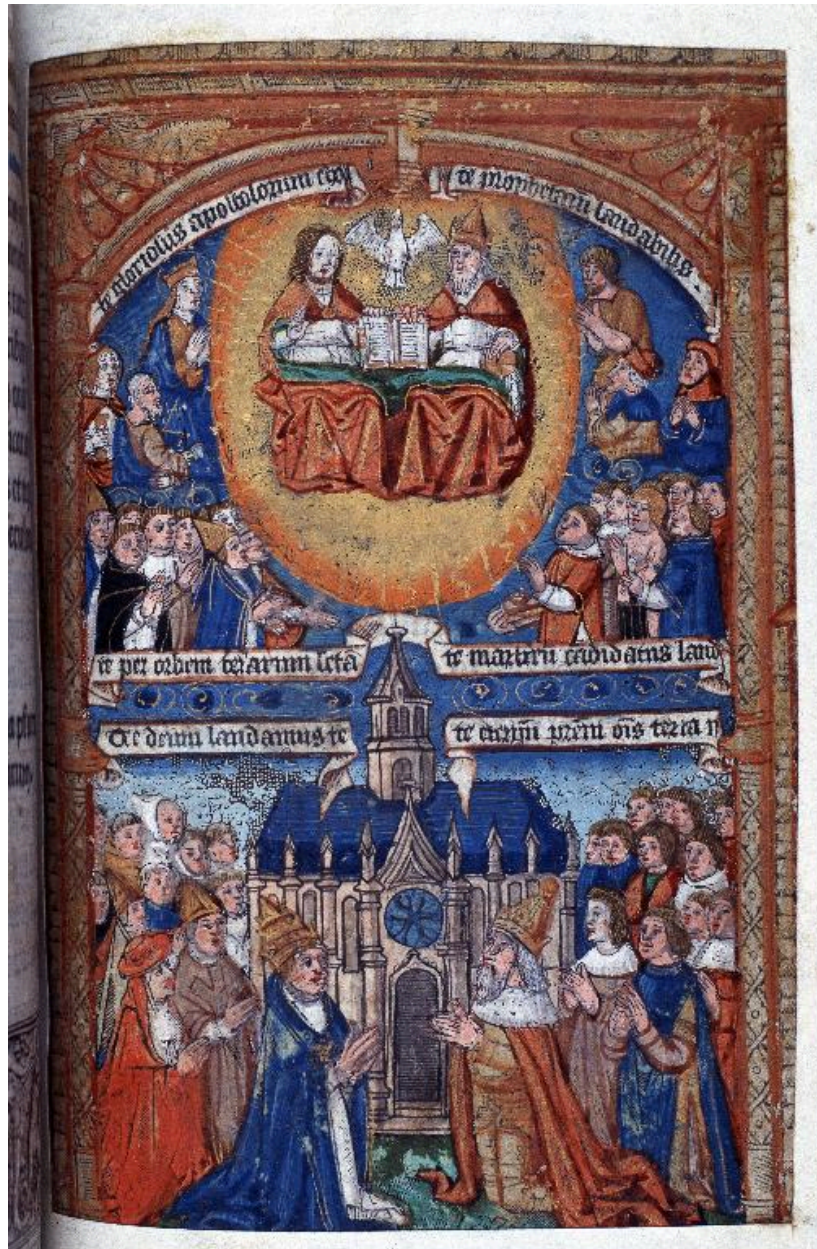 te gloriosus apostolorum
te prophetarū laudabilis
te per orbem terarum scta
te martirū cādidatus laud
Te deum laudamus te
te eternū prēm oīs terra